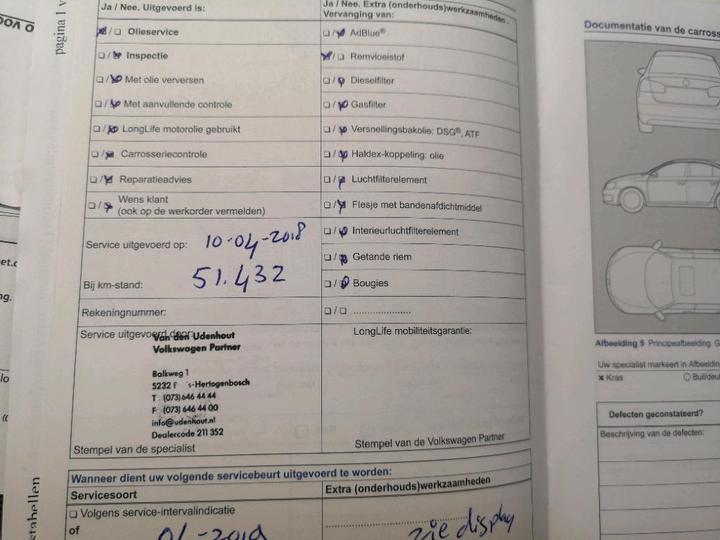 pagina 1 v
Ja / Nee. Uitgevoerd is:
☒/☐ Olieservice
☐/☒ Inspectie
☐/☒ Met olie verversen
☐/☒ Met aanvullende controle
☐/☒ LongLife motorolie gebruikt
☐/☒ Carrosseriecontrole
☐/☒ Reparatieadvies
☐/☒ Wens klant
(ook op de werkorder vermelden)
Service uitgevoerd op: 10-04-2018
Bij km-stand: 51.432
Rekeningnummer:
Service uitgevoerd door:
Van den Udenhout
Volkswagen Partner
Balkweg 1
5232 's-Hertogenbosch
T (073) 646 44 44
F (073) 646 44 00
info@udenhout.nl
Dealercode 211 352
Stempel van de specialist
Ja / Nee. Extra (onderhouds)werkzaamheden.
Vervanging van:
☐/☒ AdBlue®
☒/☐ Remvloeistof
☐/☒ Dieselfilter
☐/☒ Gasfilter
☐/☒ Versnellingsbakolie: DSG®, ATF
☐/☒ Haldex-koppeling: olie
☐/☒ Luchtfilterelement
☐/☒ Flesje met bandenafdichtmiddel
☐/☒ Interieurluchtfilterelement
☐/☒ Getande riem
☐/☒ Bougies
☐/☐ ....................
LongLife mobiliteitsgarantie:
Stempel van de Volkswagen Partner
Wanneer dient uw volgende servicebeurt uitgevoerd te worden:
Servicesoort
Extra (onderhouds)werkzaamheden
☐ Volgens service-intervalindicatie
of
zie display
stabellen
Documentatie van de carross
Afbeelding 5 Principeafbeelding. G
Uw specialist markeert in Afbeeldin
× Kras
○ Buil/deu
Defecten geconstateerd?
Beschrijving van de defecten: